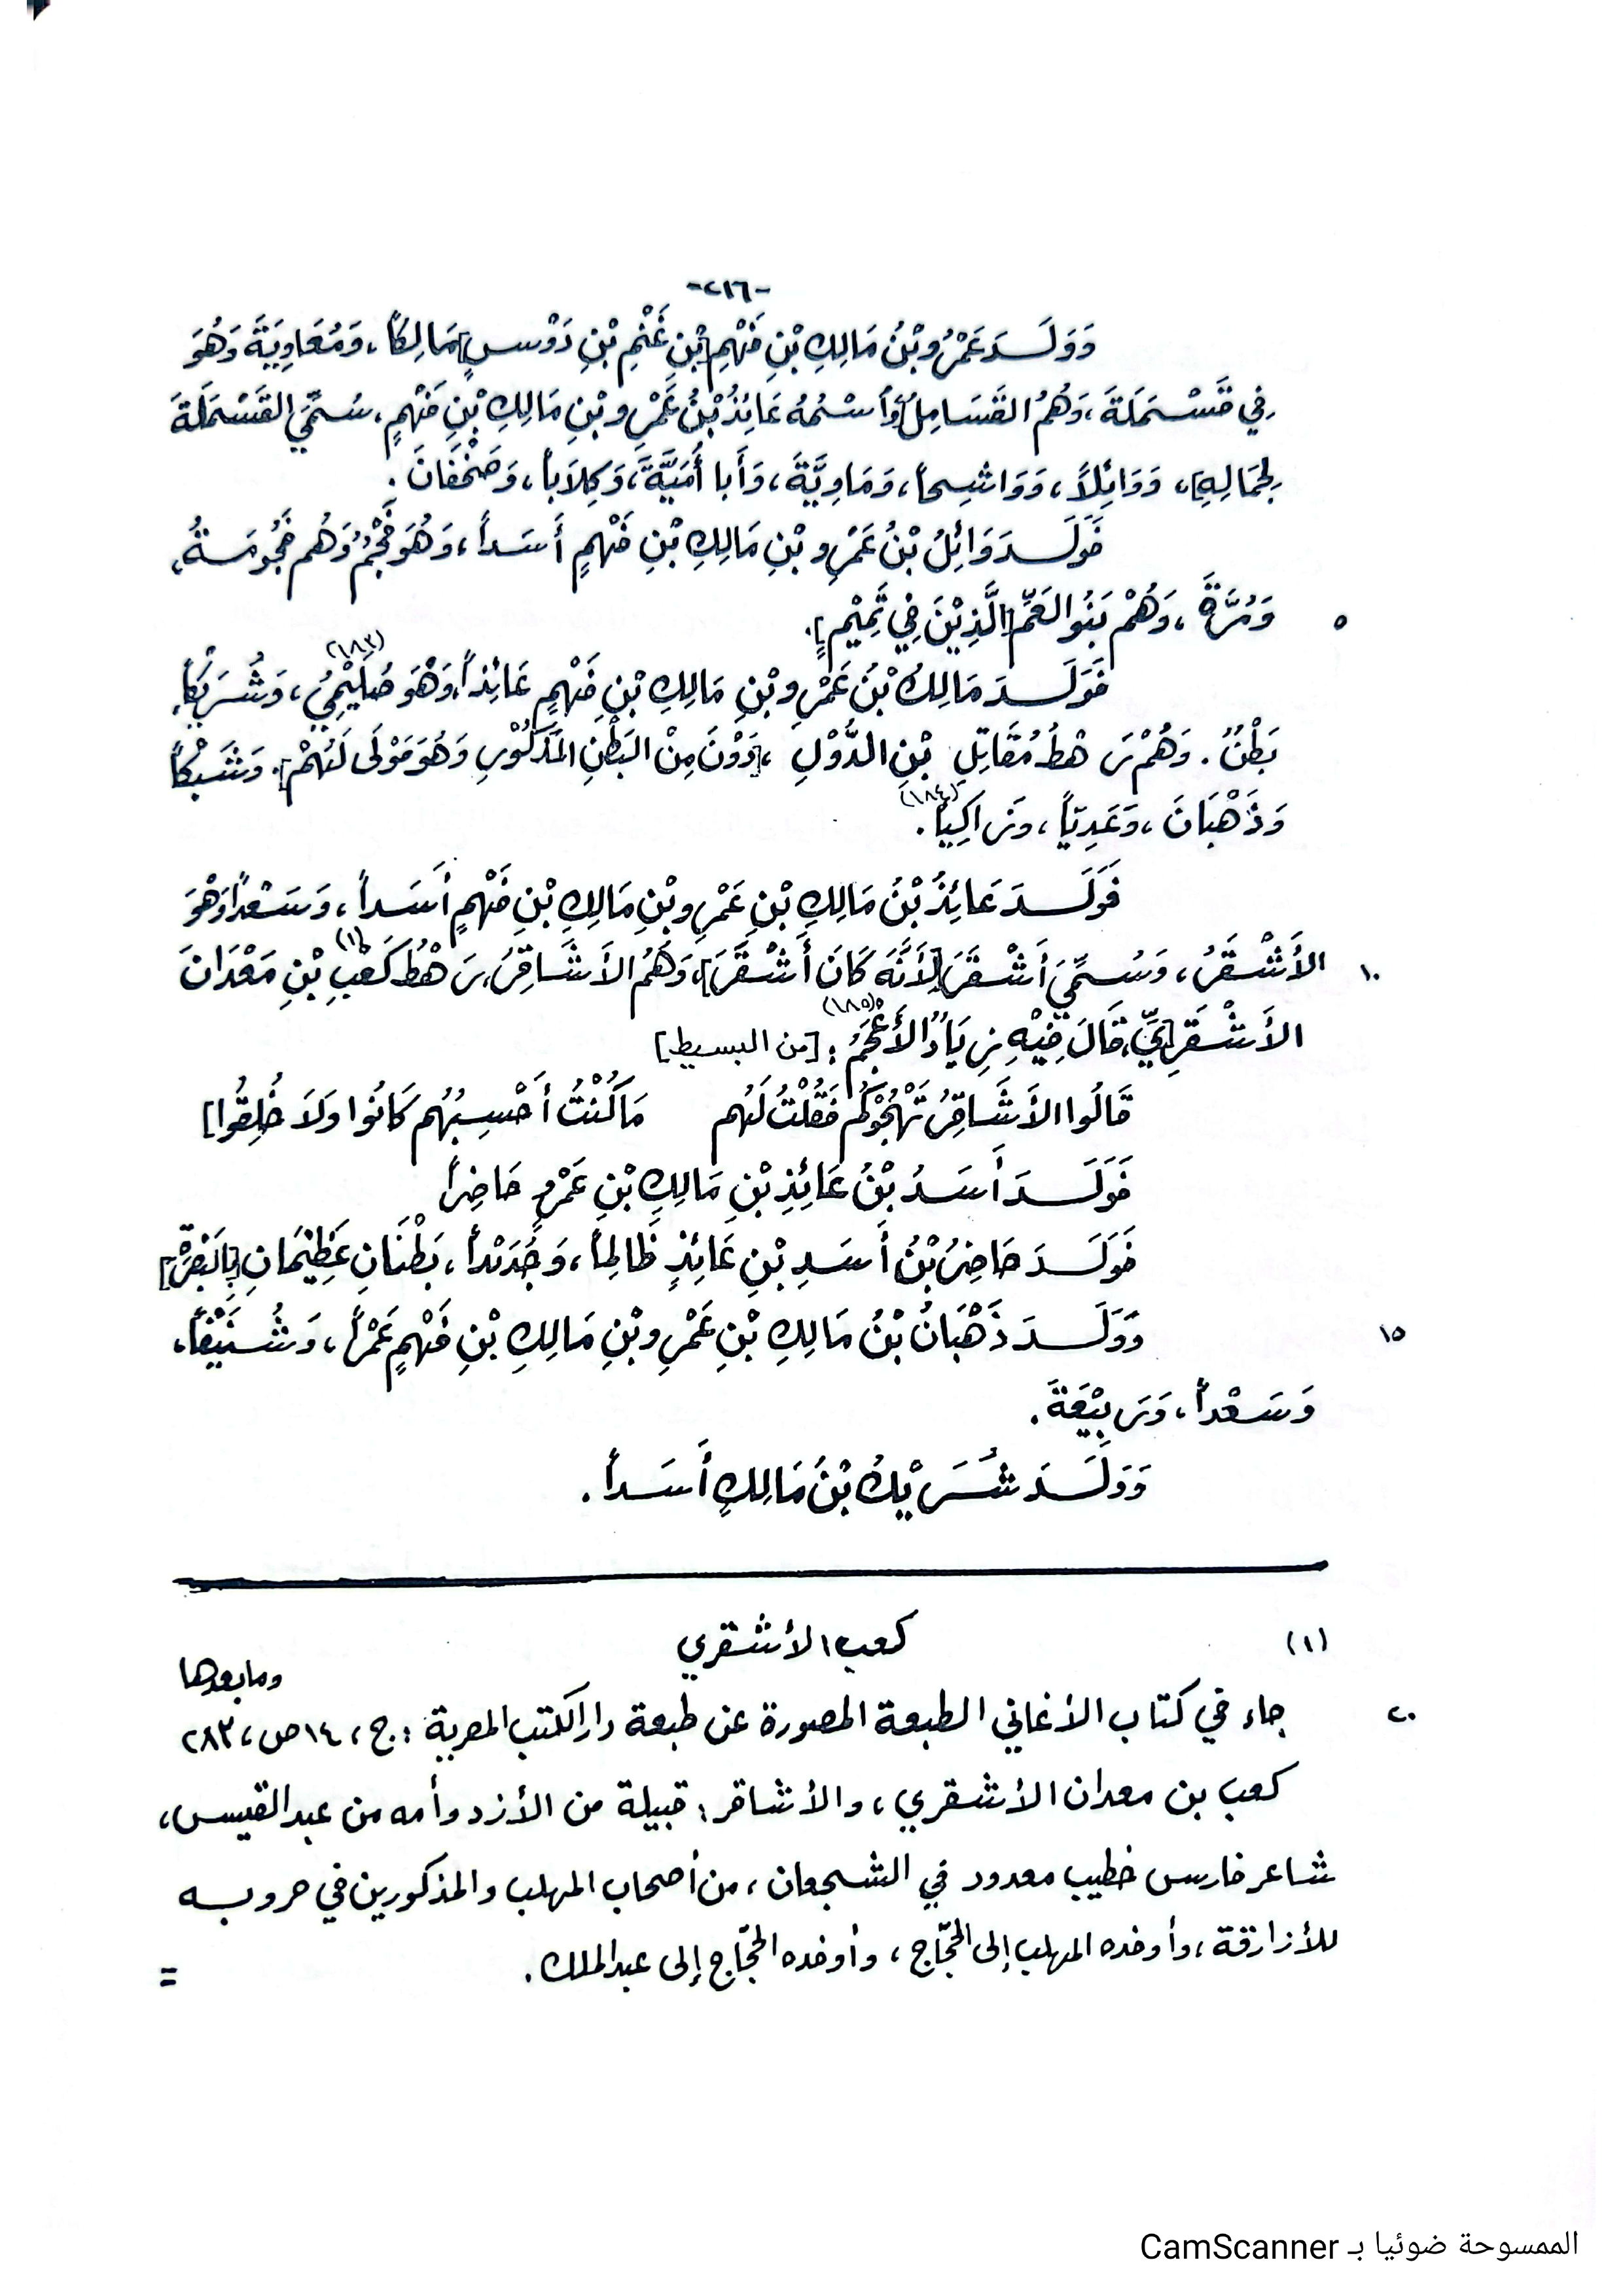 -٢١٦-
وَوَلَـدَ عَمْرُو بْنُ مَالِكِ بْنِ فَهْمٍ [بْنِ غَنْمِ بْنِ دَوْسٍ] مَالِكاً، وَمُعَاوِيَةَ وَهُوَ
فِي قَسْمَلَةَ، وَهُمُ القَسَامِلُ [وَأَسْمُهُ عَائِذُ بْنُ عَمْرِو بْنِ مَالِكِ بْنِ فَهْمٍ، سُمِّيَ القَسْمَلَةَ
لِجَمَالِهِ]، وَوَائِلاً، وَوَاشِحاً، وَمَاوِيَّةَ، وَأَبا أُمَيَّةَ، وَكِلاَباً، وَضَحْفَانَ.
فَوَلَـدَ وَائِلُ بْنُ عَمْرِو بْنِ مَالِكِ بْنِ فَهْمٍ أَسَداً، وَهُوَ فُجْمٌ وَهُم فَجُومَةُ،
٥ وَمُرَّةَ، وَهُمْ بَنُو العَمِّ [الَّذِيْنَ فِي تَمِيْمٍ].
فَوَلَـدَ مَالِكُ بْنُ عَمْرِو بْنِ مَالِكِ بْنِ فَهْمٍ عَائِذاً، وَهُوَ صُلَيْمِيُّ (١٨٣)، وَشُرَيْكاً،
بَطْنٌ. وَهُمْ رَهْطُ مُقَاتِلِ بْنِ الدُّوْلِ، [دَوْنَ مِنْ البَطْنِ المَذْكُوْرِ وَهُوَ مَوْلَى لَهُمْ]. وَشَبْكاً
وَذَهْبَانَ، وَعَدِيّاً، وَزَاكِيَاً (١٨٤).
فَوَلَـدَ عَائِذُ بْنُ مَالِكِ بْنِ عَمْرِو بْنِ مَالِكِ بْنِ فَهْمٍ أَسَداً، وَسَعْداً وَهُوَ
١٠ الأَشْقَرُ، وَسُمِّيَ أَشْقَرَ [لأَنَّهُ كَانَ أَشْقَرَ]، وَهُمُ الأَشَاقِرُ، رَهْطُ كَعْبِ (١) بْنِ مَعْدَانَ
الأَشْقَرِ[يِّ، قَالَ فِيْهِ زِيَادٌ الأَعْجَمُ (١٨٥): [من البسيط]
قَالُوا الأَشَاقِرُ تَهْجُوْكُم فَقُلْتُ لَهُم مَا كُنْتُ أَحْسِبُهُم كَانُوا وَلاَ خُلِقُوا]
فَوَلَـدَ أَسَدُ بْنُ عَائِذِ بْنِ مَالِكِ بْنِ عَمْرٍو حَاضِراً
فَوَلَـدَ حَاضِرُ بْنُ أَسَدِ بْنِ عَائِذٍ ظَالِماً، وَجُدَنْداً، بَطْنَانِ عَظِيْمَانِ [بِالبَصْرَةِ]
١٥ وَوَلَـدَ ذَهْبَانُ بْنُ مَالِكِ بْنِ عَمْرِو بْنِ مَالِكِ بْنِ فَهْمٍ عَمْراً، وَشُنَيْفاً،
وَسَعْداً، وَرَبِيْعَةَ.
وَوَلَـدَ شُـرَيْكُ بْنُ مَالِكٍ أَسَداً.
(١) كعب الأشقري
٢٠ جاء في كتاب الأغاني الطبعة المصورة عن طبعة دار الكتب المصرية: ج، ١٤ ص، ٢٨٣ وما بعدها
كعب بن معدان الأشقري، والأشاقر: قبيلة من الأزد وأمه من عبد القيس،
شاعر فارس خطيب معدود في الشجعان، من أصحاب المهلب والمذكورين في حروبه
للأزارقة، وأوفده المهلب إلى الحجّاج، وأوفده الحجّاج إلى عبد الملك. =
الممسوحة ضوئيا بـ CamScanner